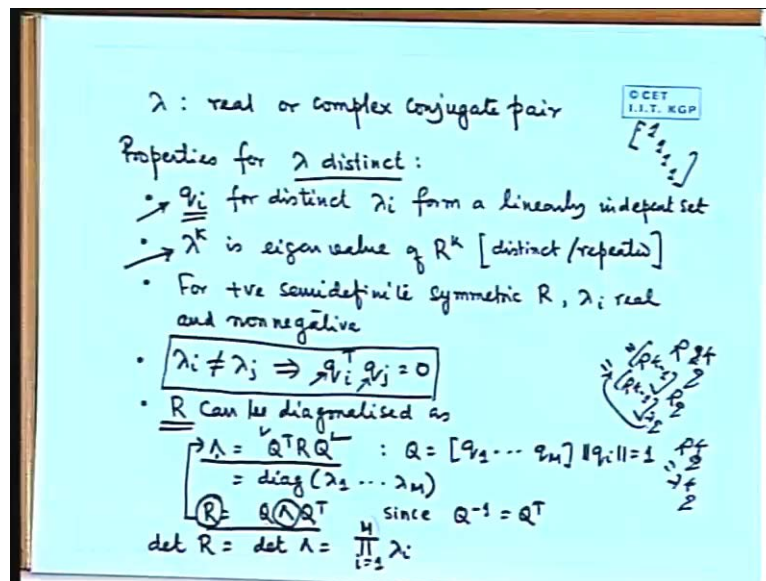 λ : real or complex conjugate pair
©CET
I.I.T. KGP
[1
1
1
1]
Properties for λ distinct :
• qᵢ for distinct λᵢ form a linearly indepent set
• λᴷ is eigen value of Rᵏ [distinct/repeated]
• For +ve semidefinite symmetric R, λᵢ real
and nonnegative
• λᵢ ≠ λⱼ ⇒ qᵢᵀ qⱼ = 0
• R can be diagonalised as
Λ = QᵀRQ : Q = [q₁ ··· q_M] ||qᵢ|| = 1
= diag (λ₁ ··· λ_M)
R = QΛQᵀ since Q⁻¹ = Qᵀ
det R = det Λ = ∏ᵢ₌₁ᴹ λᵢ